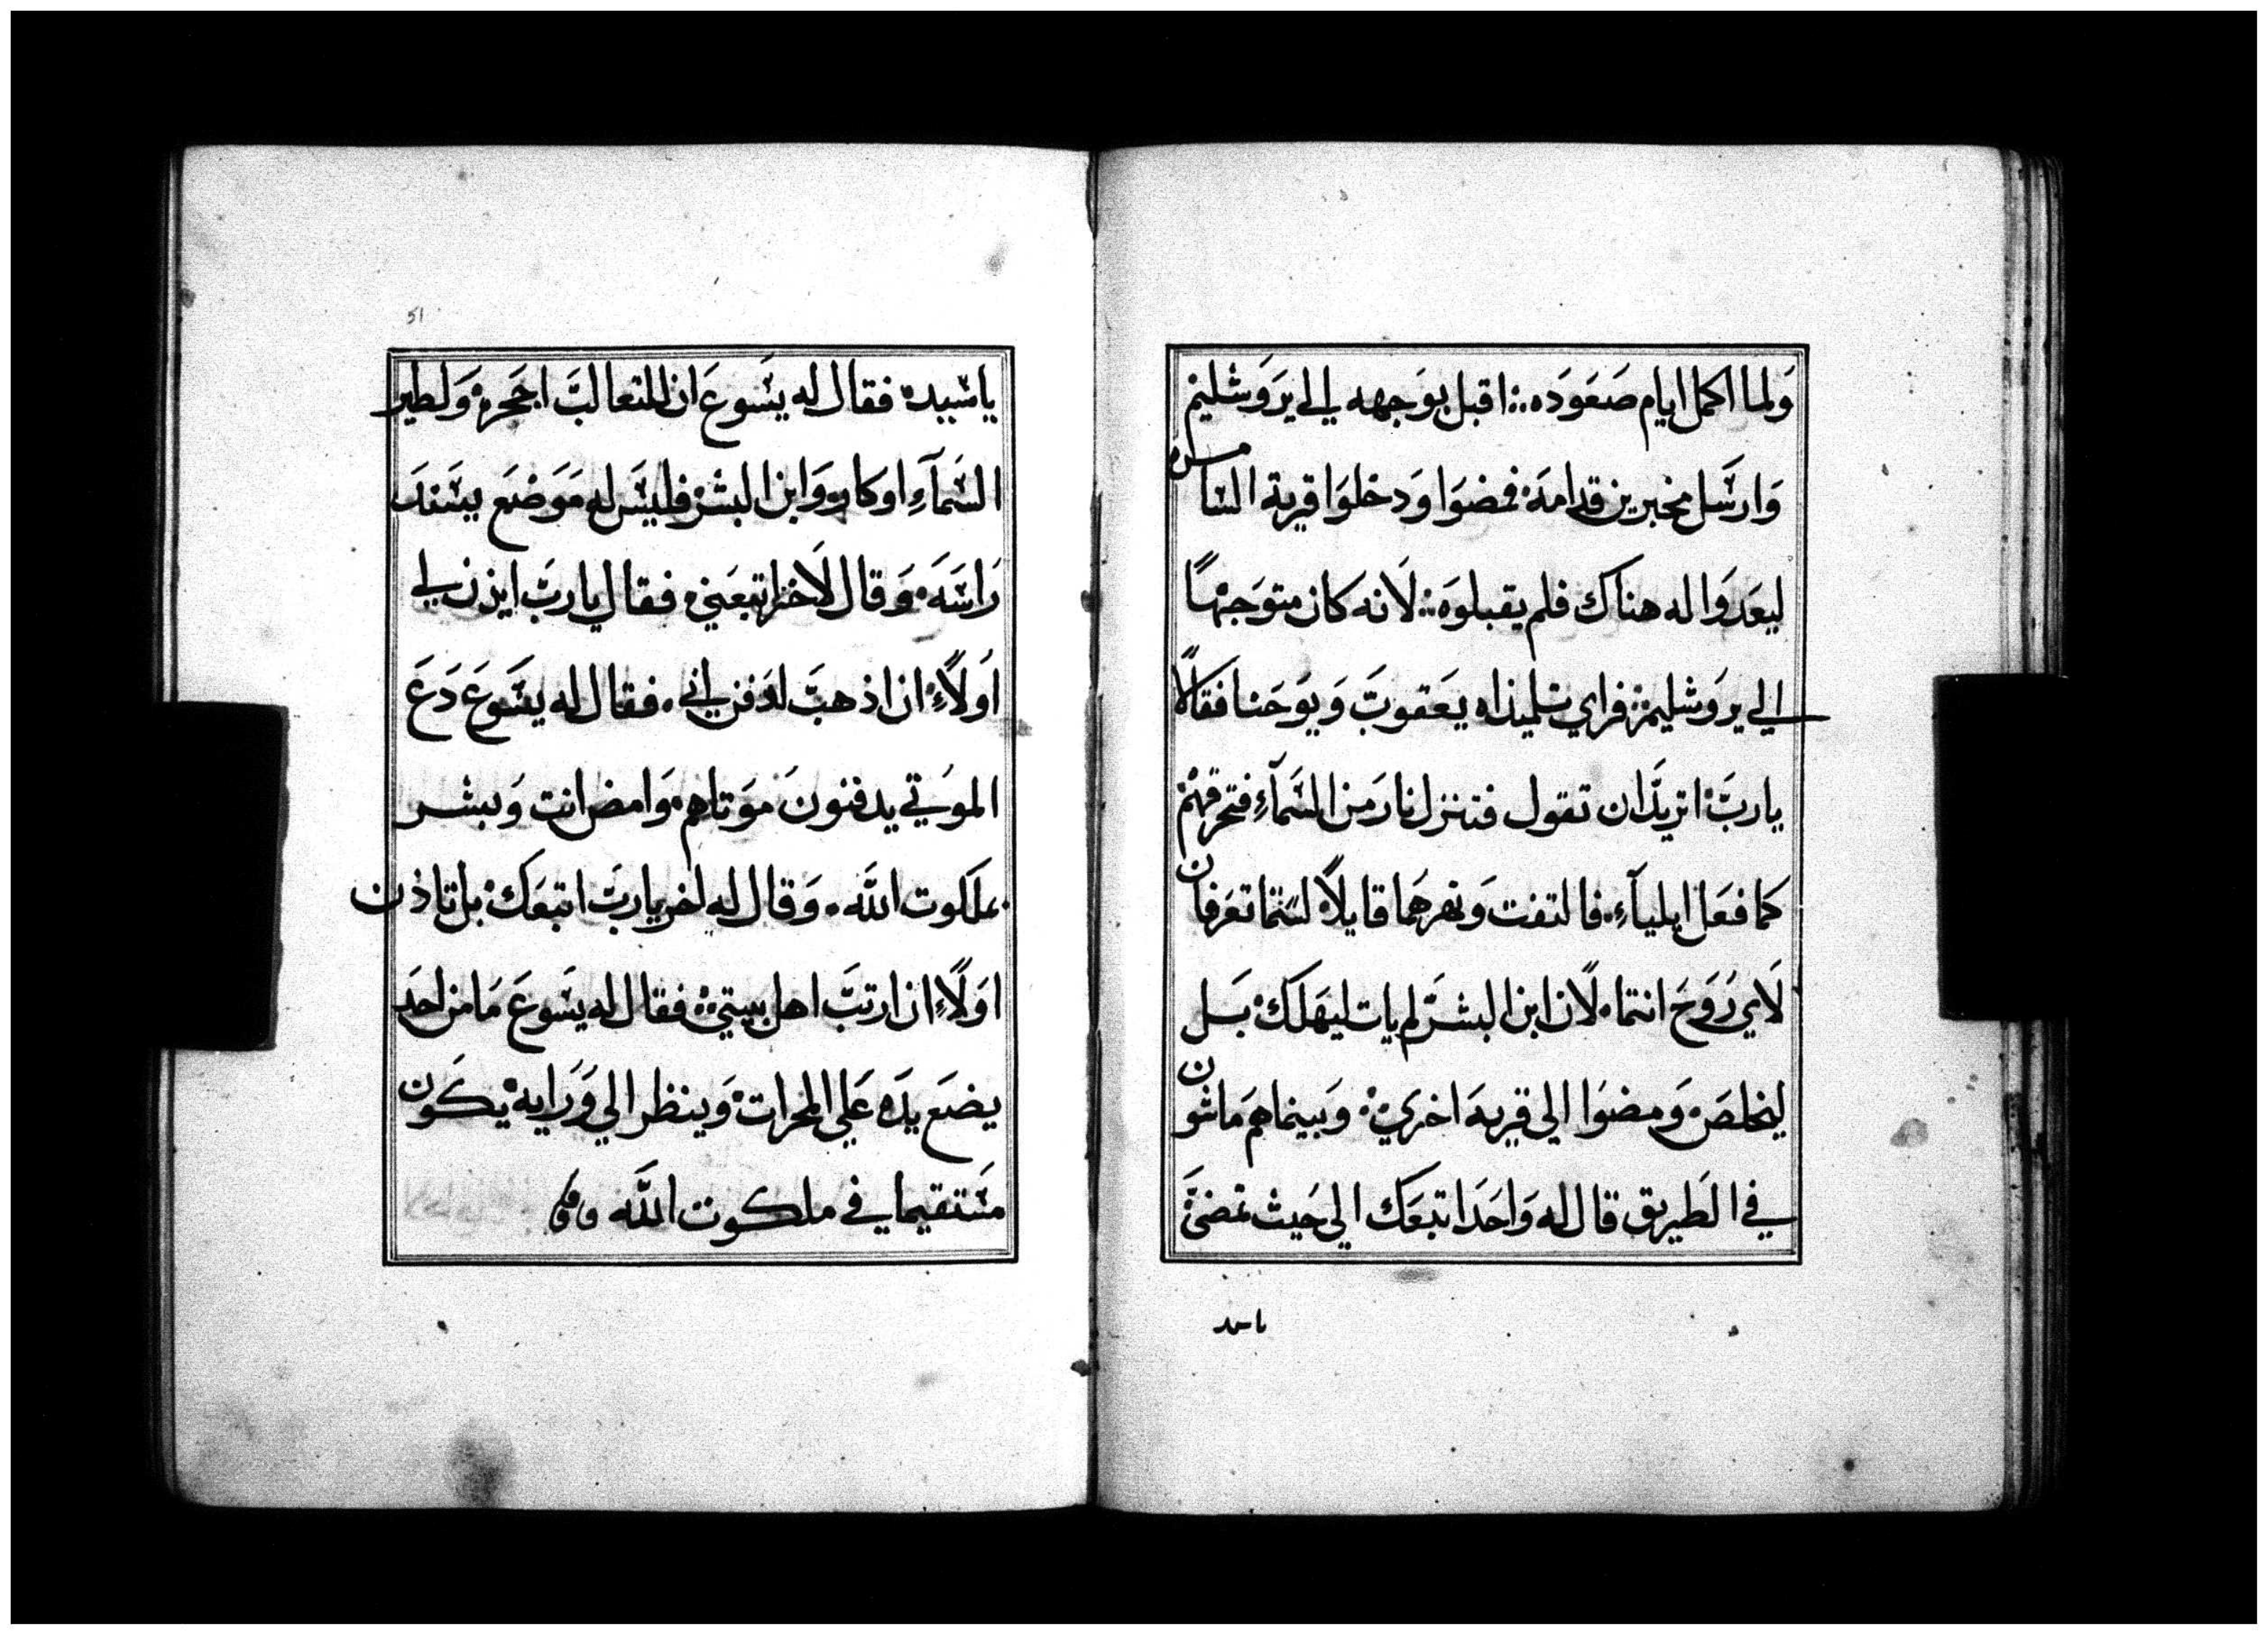 وَلما اكمل ايام صَعَوَده :· اقبل بوَجهه الي ايرَوَشليم
وَارسَل مخبرين قدامهَ فمضوَا وَدخلوَا قرية السامره
ليعَدوَا له هناك فلم يقبلوهَ :· لَانه كان متوَجهًا
الي يروَشليم :· فراي تلميذاه يعَقوبَ وَيوَحَنا فقالًا
ياربَ اتريدَ ان تقول فتنزل نارَ من السَمآءِ فتحرقهم
كما فعَل ايليآءِ. فالتفت وَنهرهَما قايلاً لستما تعَرفان
لَاي رُوَحَ انتما. لَان ابن البشرَ لم يات ليهَلك بَل
ليخلصَ. وَمضوَا الي قريهَ اخري. وَبينما همَ ماشون
في الطَريق قال له وَاحَد اتبعَك الي حَيث تمضيَ
ياسيد
51
ياسَيده فقال له يسَوعَ ان للثعالبَ اجحَره وَلطير
السَمآءِ اوكار وَابن البشر فليسَ له مَوَضعَ يسَندَ
رَاسَهَ وَقال لَاخر اتبعَني. فقال ياربَ ايذن لي
اوَلاًءِ ان اذهبَ لدَفن ابي. فقال له يسَوعَ دَعَ
الموَتي يدفنونَ مَوَتاهم. وَامض انت وَبشر
بملكوت اللَه. وَقال له اخر ياربَ اتبعَك بل تاذن
اوَلًاءِ ان ارتبَ اهل بيتي :· فقال له يسَوعَ مَا من احدَ
يضعَ يدَه عَلي المحرات وَينظر الي وَرَايه يكَون
مسَتقيما في ملكوت اللَه